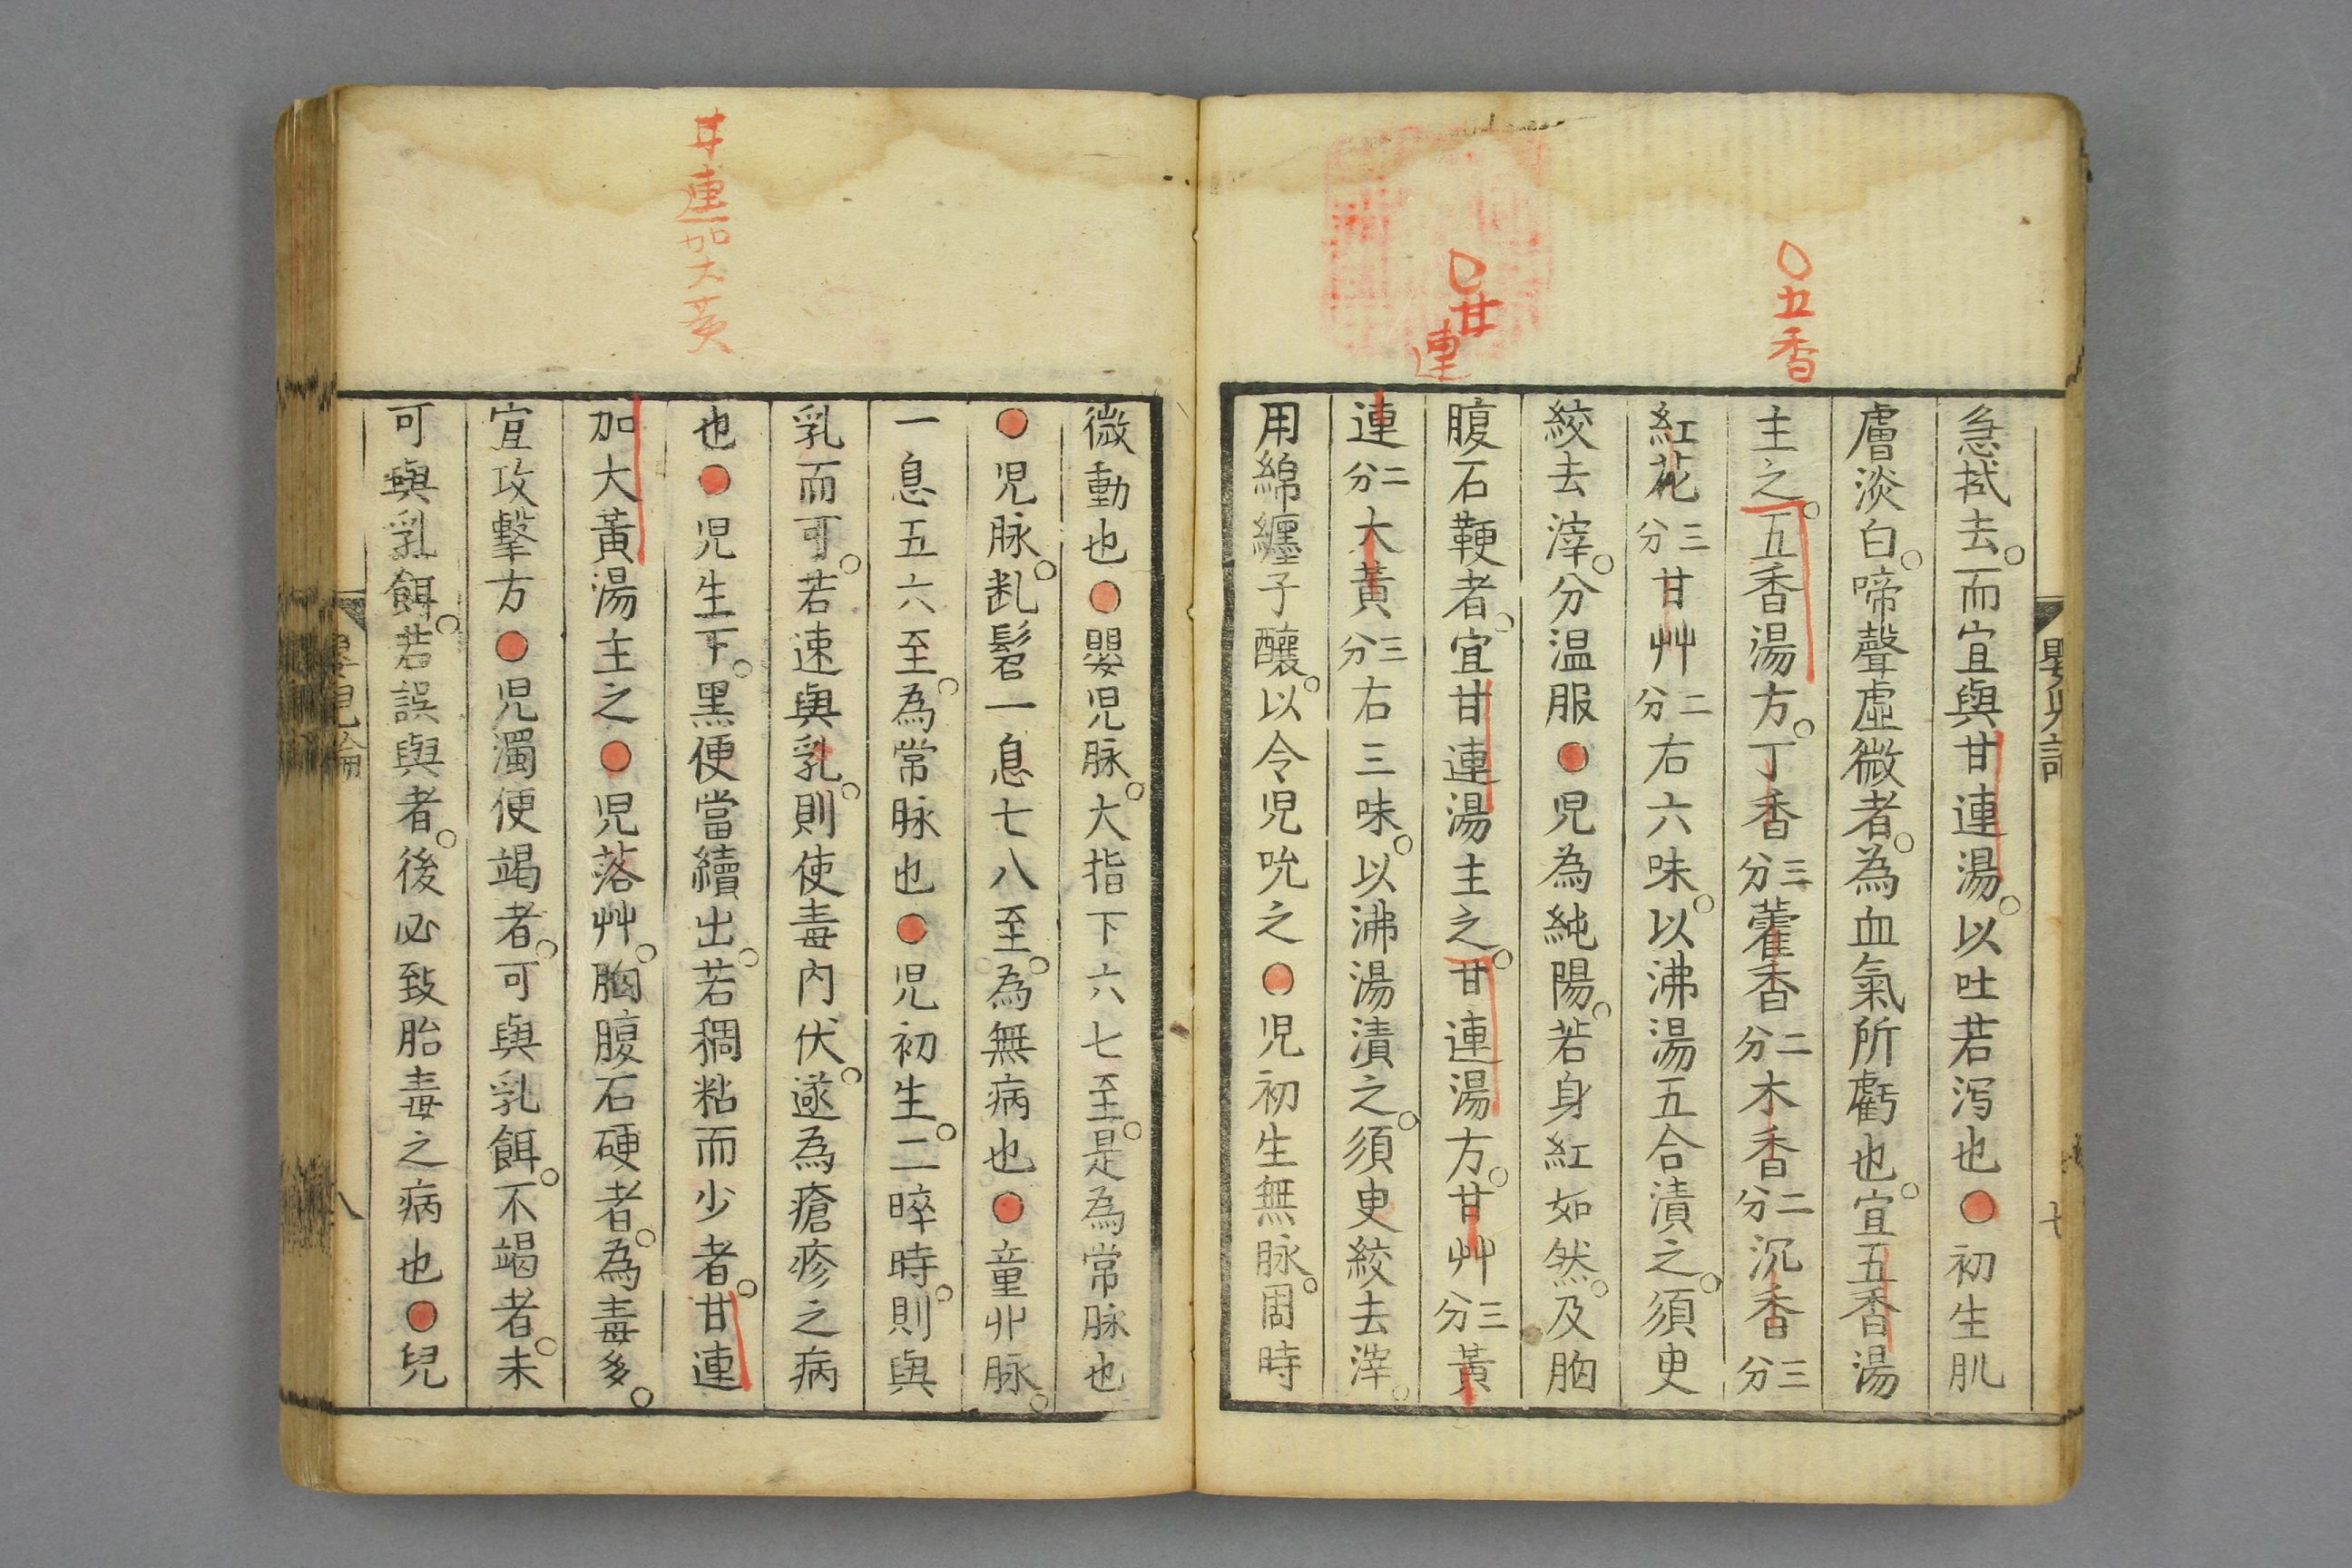 ○五香
○甘
連
急拭去。而宜與甘連湯。以吐若泻也●初生肌
膚淡白。啼聲虛微者。為血氣所虧也。宜五香湯
主之。五香湯方。丁香三分藿香二分木香二分沉香三分
紅花三分甘艸二分右六味。以沸湯五合漬之。須臾
絞去滓。分温服●児為純陽。若身紅如然。及胸
腹石鞕者。宜甘連湯主之。甘連湯方。甘艸三分黃
連二分大黃三分右三味。以沸湯漬之。須臾絞去滓。
用綿纏子釀。以令児吮之●児初生無脉。周時
甘連加大黄
微動也●嬰児脉。大指下六七至。是為常脉也
●児脉。乿髫一息七八至。為無病也●童丱脉。
一息五六至。為常脉也●児初生。二晬時。則與
乳而可。若速與乳。則使毒内伏。遂為瘡疹之病
也●児生下。黑便當續出。若稠粘而少者。甘連
加大黃湯主之●児落艸。胸腹石硬者。為毒多。
宜攻擊方●児濁便竭者。可與乳餌。不竭者。未
可與乳餌。若誤與者。後必致胎毒之病也●兒
嬰兒論
八